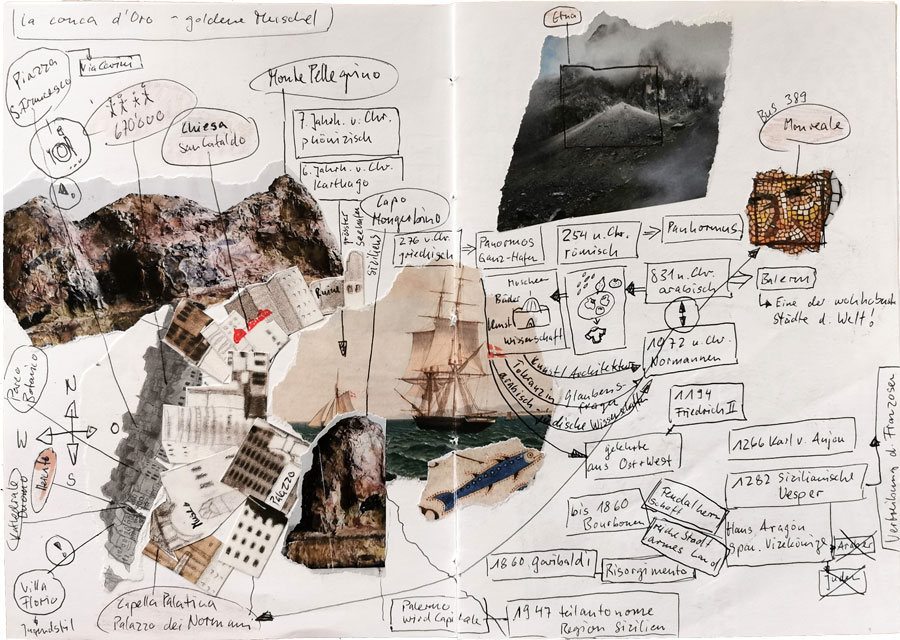 La conca d'Oro – goldene Muschel
Piazza
S. Francesco
670'000
Chiesa
San Cataldo
Monte Pellegrino
7. Jahrh. v. Chr.
phönizisch
6. Jahrh. v. Chr.
Karthago
Capo
Mongerbino
grösster
Seehafen
Siziliens
276 v. Chr.
griechisch
Etna
Bus 389
Monreale
Panormos
Ganz-Hafen
254 v. Chr.
römisch
Panhormus
831 n. Chr.
arabisch
Balerm
Eine der wohlhabendst
Städte d. Welt!
Moscheen
Bäder
Kunst
Wissenschaft
1972 n. Chr.
Normannen
Kunst/Architektur
Toleranz in Glaubens-
fragen
arabisch
jüdische Wissenschaften
1194
Friedrich II
gelehrte
aus Ost+West
1266 Karl v. Anjou
1282 Sizilianische
Vesper
Vertreibung d. Franzosen
bis 1860
Bourbonen
Feudalherr-
schaft
reiche Stadt
armes Land
Haus Aragon
span. Vizekönige
Araber
Juden
1860 garibaldi
Risorgimento
Palermo
wird Capitale
1947 teilautonome
Region Sizilien
Parco
Botanico
N
W
O
S
Kathedrale
Palazzo
Villa
Florio
Jugendstil
Capella Palatina
Palazzo dei Normani